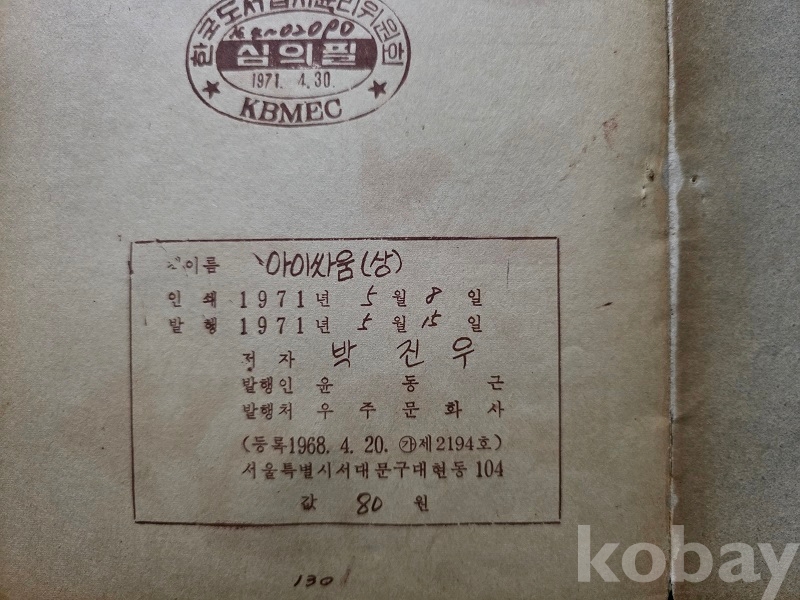 한국도서잡지윤리위원회
심의필
1971. 4. 30.
★ KBMEC ★
책이름 아이싸움(상)
인쇄 1971년 5월 8일
발행 1971년 5월 15일
저자 박진우
발행인 윤동근
발행처 우주문화사
(등록1968. 4. 20. ㉮제2194호)
서울특별시서대문구대현동 104
값 80 원
130
kobay